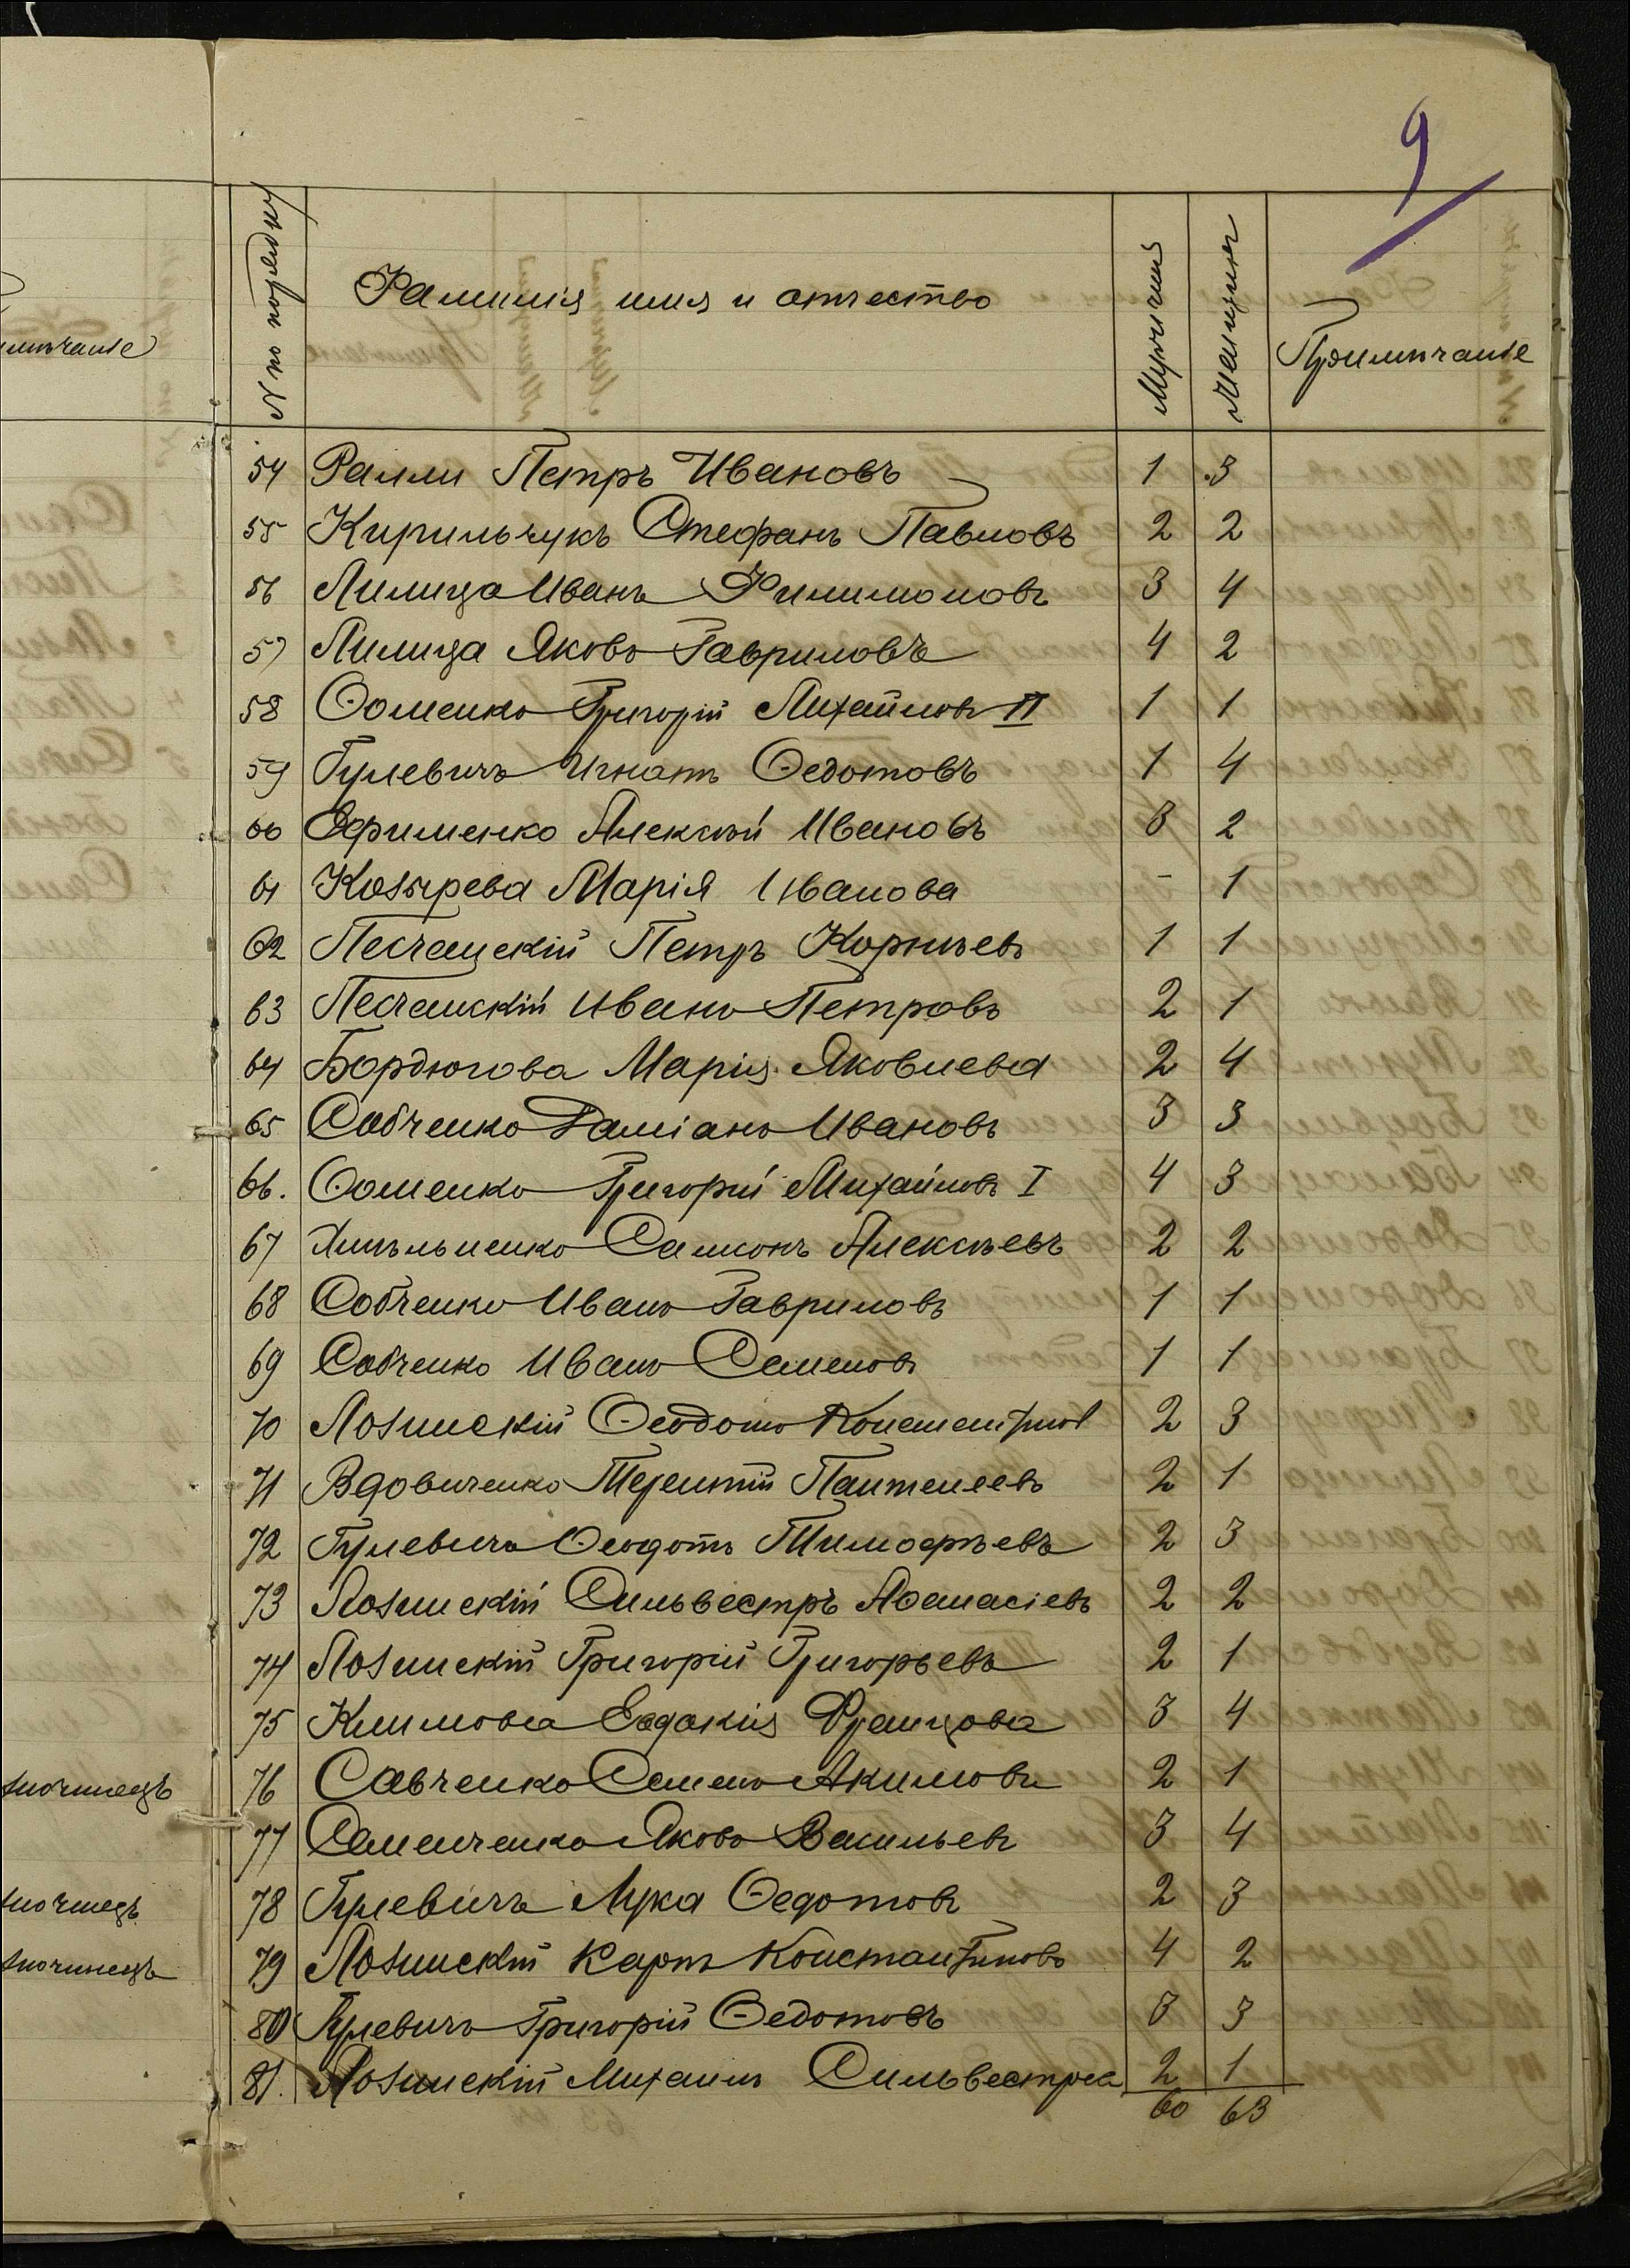 9
N по порядку Фамилія имя и отчество Мужчины Женщины Примѣчаніе
54 Ралли Петръ Ивановъ 1 3
55 Кирильчукъ Стефанъ Павловъ 2 2
56 Лилица Иванъ Филимоновъ 3 4
57 Лилица Яковъ Гавриловъ 4 2
58 Ѳоменко Григорій Михайловъ II 1 1
59 Гулевичъ Игнатъ Ѳедотовъ 1 4
60 Ефименко Алексѣй Ивановъ 3 2
61 Козырева Марія Иванова - 1
62 Песчанскій Петръ Корнѣевъ 1 1
63 Песчанскій Иванъ Петровъ 2 1
64 Бордюгова Марія Яковлева 2 4
65 Собченко Даміанъ Ивановъ 3 3
66. Ѳоменко Григорій Михайловъ I 4 3
67 Хмѣльненко Самсонъ Алексѣевъ 2 2
68 Собченко Иванъ Гавриловъ 1 1
69 Собченко Иванъ Семеновъ 1 1
70 Лозинскій Ѳеодотъ Константинов 2 3
71 Вдовиченко Терентій Пантелеевъ 2 1
72 Гулевичъ Ѳеодотъ Тимофѣевъ 2 3
73 Лозинскій Сильвестръ Аѳанасіевъ 2 2
74 Лозинскій Григорій Григорьевъ 2 1
75 Климова Евдокія Францова 3 4
76 Савченко Семенъ Акимовъ 2 1
77 Семенченко Яковъ Васильевъ 3 4
78 Гулевичъ Лука Ѳедотовъ 2 3
79 Лозинскій Карпъ Константиновъ 4 2
80 Гулевичъ Григорій Ѳедотовъ 3 3
81. Лозинскій Михаилъ Сильвестров 2 1
60 63